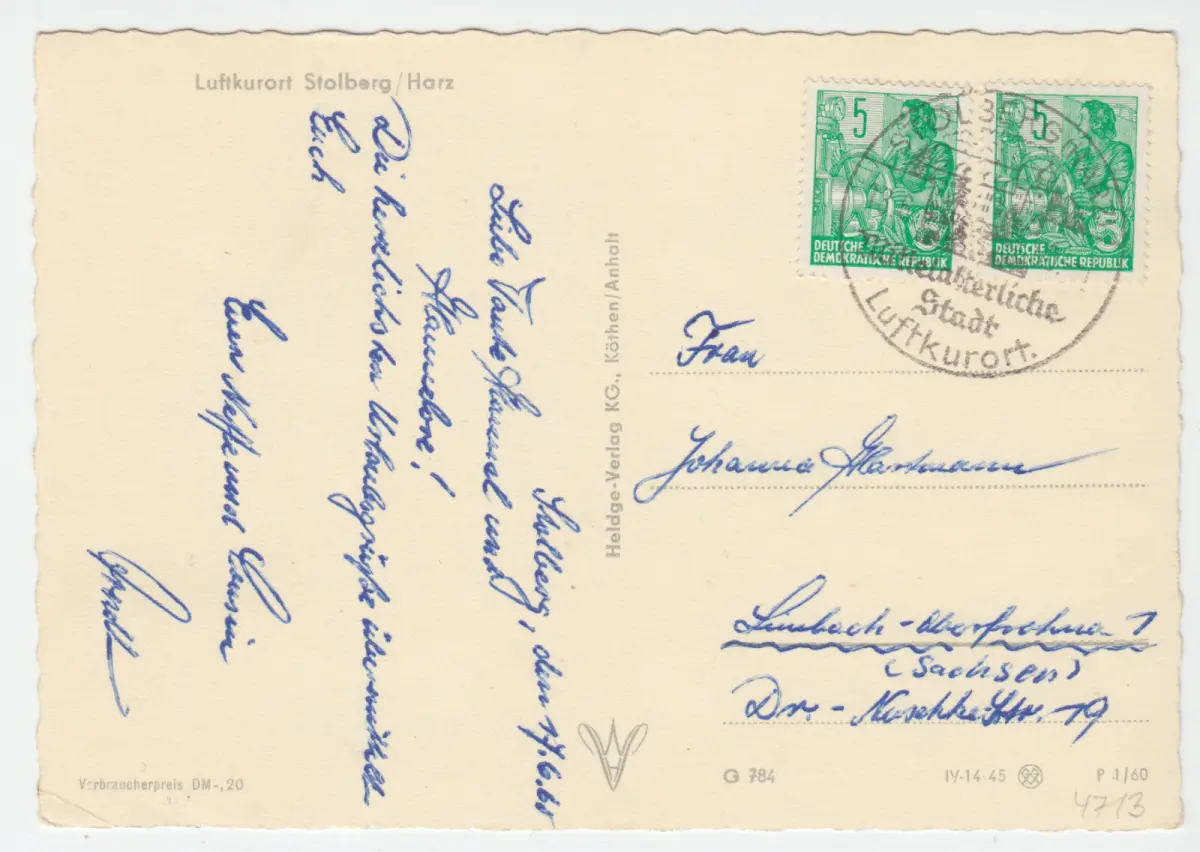 Luftkurort Stolberg/Harz
Stolberg, den 17.6.60
Liebe Tante Hannel und
Hannelore!
Die herzlichsten Urlaubsgrüße übermittelt
Euch
Euer Neffe und Cousin
Arndt
Verbraucherpreis DM -,20
Heldge-Verlag KG., Köthen/Anhalt
5
DEUTSCHE
DEMOKRATISCHE REPUBLIK
5
5
DEUTSCHE
DEMOKRATISCHE REPUBLIK
5
STOLBERG (HARZ)
Mittelalterliche
Stadt
Luftkurort.
Frau
Johanna Hartmann
Limbach-Oberfrohna 1
(Sachsen)
Dr.-Nuschke-Str. 19
G 784
IV-14-45
P 1/60
4713